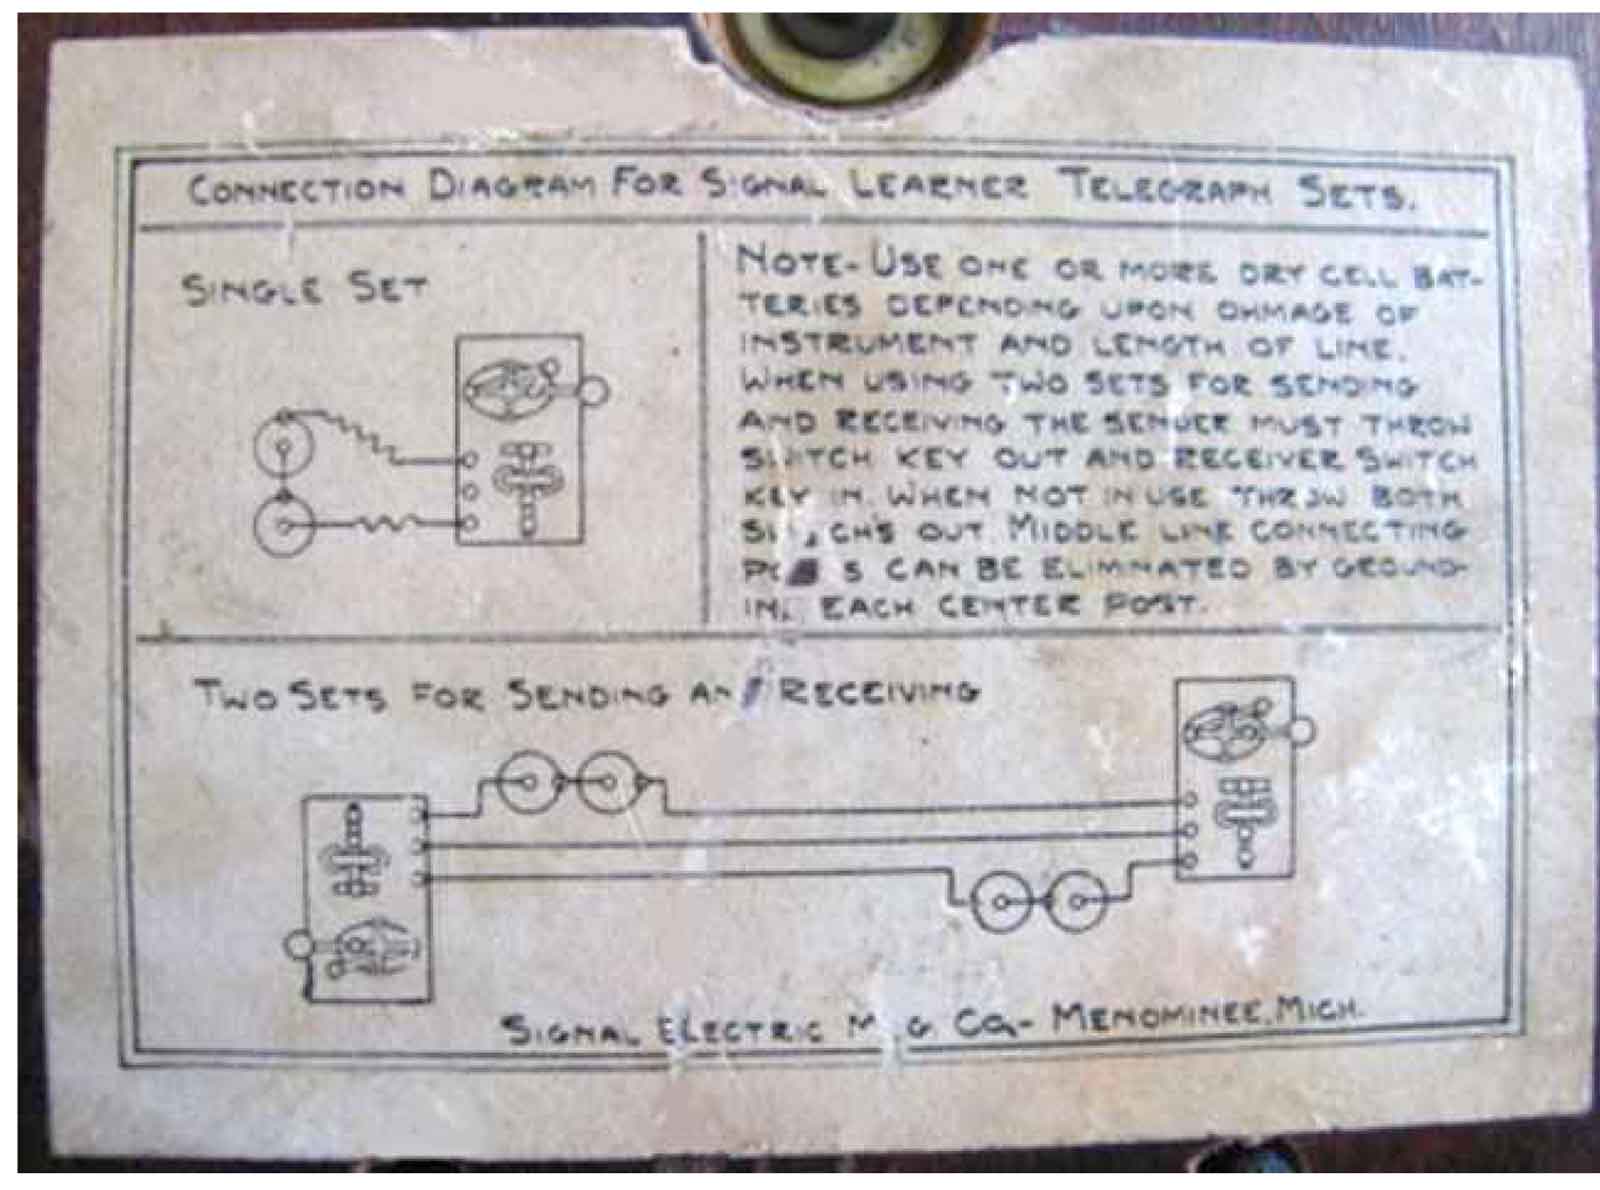 CONNECTION DIAGRAM FOR SIGNAL LEARNER TELEGRAPH SETS.
SINGLE SET
NOTE- USE ONE OR MORE DRY CELL BAT-
TERIES DEPENDING UPON OHMAGE OF
INSTRUMENT AND LENGTH OF LINE.
WHEN USING TWO SETS FOR SENDING
AND RECEIVING THE SENDER MUST THROW
SWITCH KEY OUT AND RECEIVER SWITCH
KEY IN. WHEN NOT IN USE THROW BOTH
OUT. MIDDLE LINE CONNECTING
CAN BE ELIMINATED BY GROUND-
EACH CENTER POST.
TWO SETS FOR SENDING AND RECEIVING
SIGNAL ELECTRIC CO- MENOMINEE, MICH.